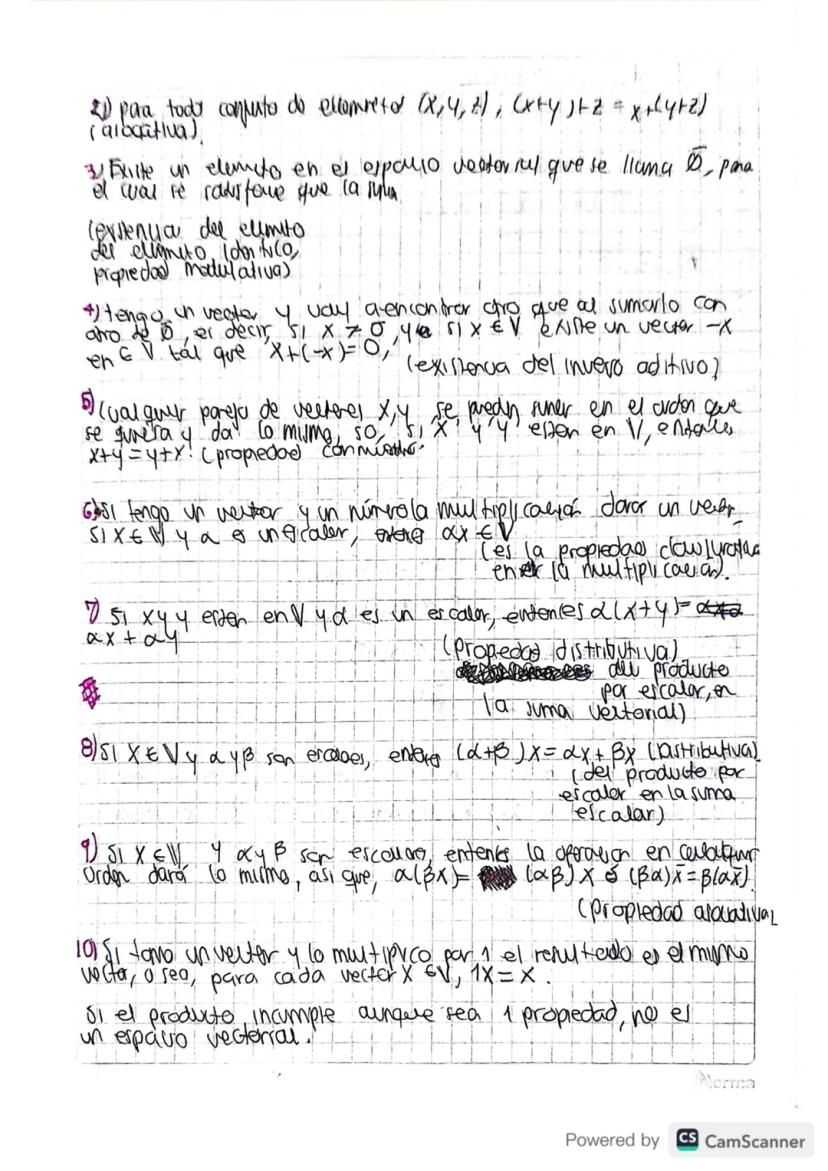 2) para todo conjunto de elementos (x,y,z), (x+y)+z = x+(y+z)
(asociativa).
3) Existe un elemento en el espacio vectorial que se llama 0, para
el cual se satisface que la suma
(existencia del elemento
del elemento idéntico,
propiedad modulativa)
4) tengo un vector y voy a encontrar otro que al sumarlo con
otro de 0, es decir, si x ≠ 0, y si x ∈ V existe un vector -x
en ∈ V tal que x+(-x)=0,
(existencia del inverso aditivo)
5) Cualquier pareja de vectores x,y se pueden sumar en el orden que
se quiera y da lo mismo, so, si x y y estan en V, entonces
x+y=y+x. (propiedad conmutativa.
6) Si tengo un vector y un número la multiplicación dara un vector
si x ∈ V y α es un escalar, entonces αx ∈ V
(es la propiedad clausurativa
en la multiplicación).
7) Si x y y estan en V y α es un escalar, entonces α(x+y)=
αx + αy
(Propiedad distributiva)
del producto
por escalar, en
la suma vectorial)
8) Si x ∈ V y α y β son escalares, entonces (α+β)x = αx + βx (Distributiva)
(del producto por
escalar en la suma
escalar)
9) Si x ∈ V y α y β son escalares, entonces la operación en cualquier
orden dará lo mismo, así que, α(βx)= (αβ)x ó (βα)x̄ = β(αx̄)
(Propiedad asociativa)
10) Si tomo un vector y lo multiplico por 1 el resultado es el mismo
vector, o sea, para cada vector x ∈ V, 1x = x.
Si el producto incumple aunque sea 1 propiedad, no es
un espacio vectorial.
Norma
Powered by CS CamScanner